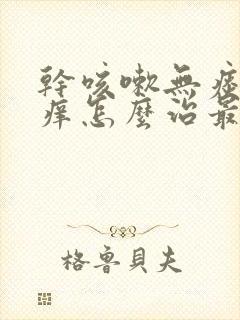 幹咳嗽無
痒怎麼治最
格魯貝夫